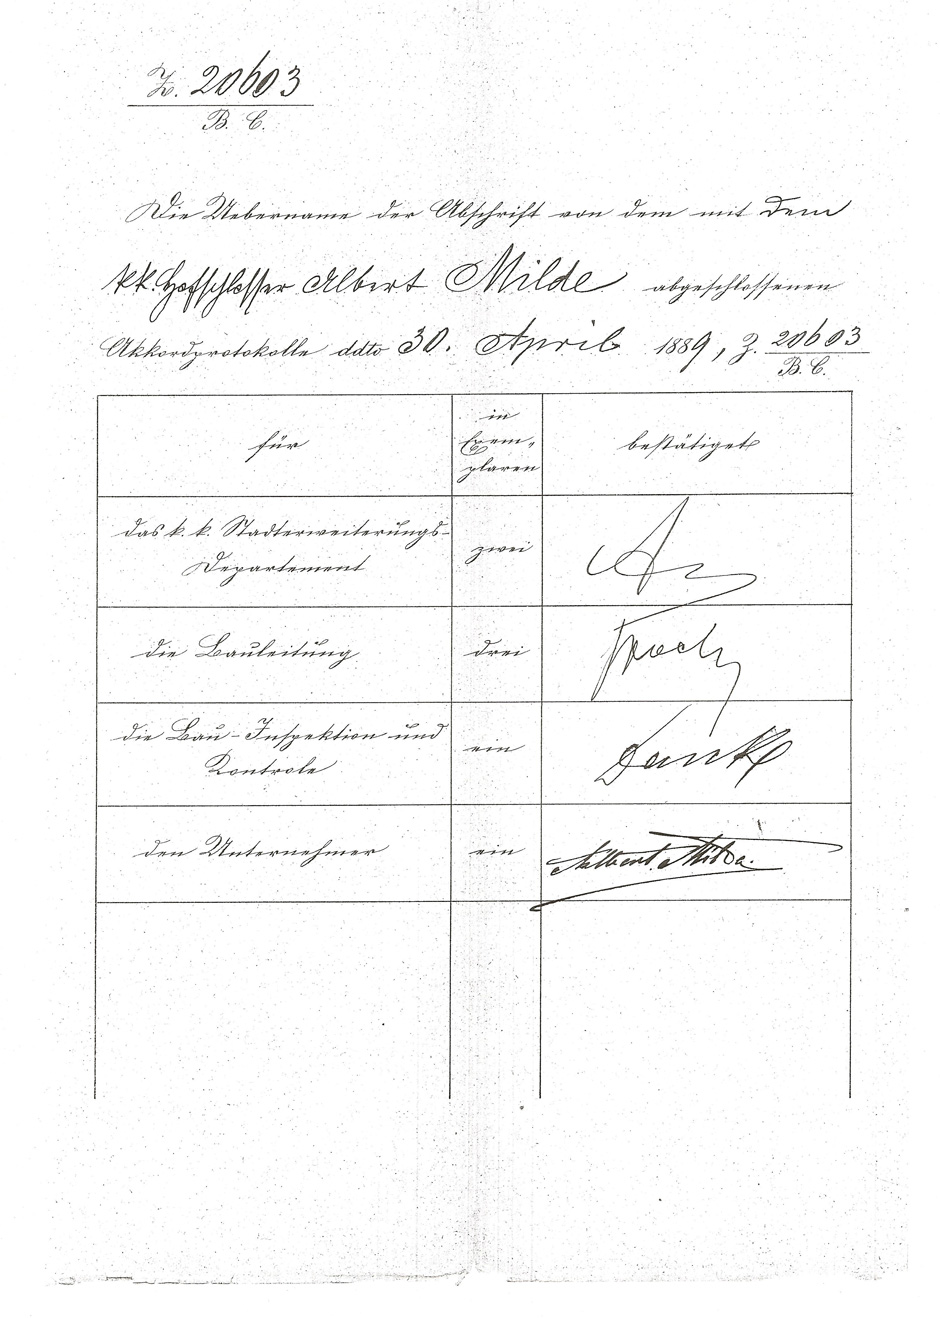 Z. 20603
B. C.
Die Uebername der Abschrift von dem mit dem
kk. Hofschlosser Albert Milde abgeschlossenen
Akkordprotokolle ddto 30. April 1889, Z. 20603
B. C.
für
in
Exem-
plaren
bestätiget
das k. k. Stadterweiterungs-
Departement
zwei
die Bauleitung
drei
die Bau-Inspektion und
Kontrole
ein
den Unternehmer
ein
Albert Milde